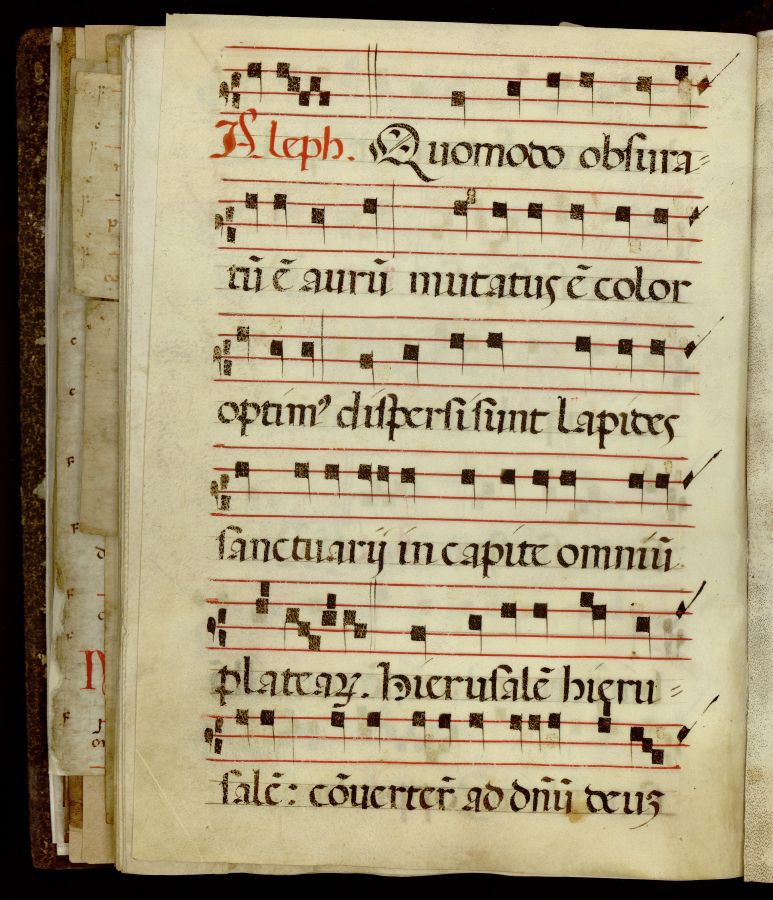 Aleph. Quomodo obsura=
tũ ẽ aurũ mutatus ẽ color
optimꝰ dispersi sunt lapides
sanctuarij in capite omniũ
plateaꝝ. hierusalẽ hieru=
salẽ: cõuerter̃ ad dñũ deuʒ